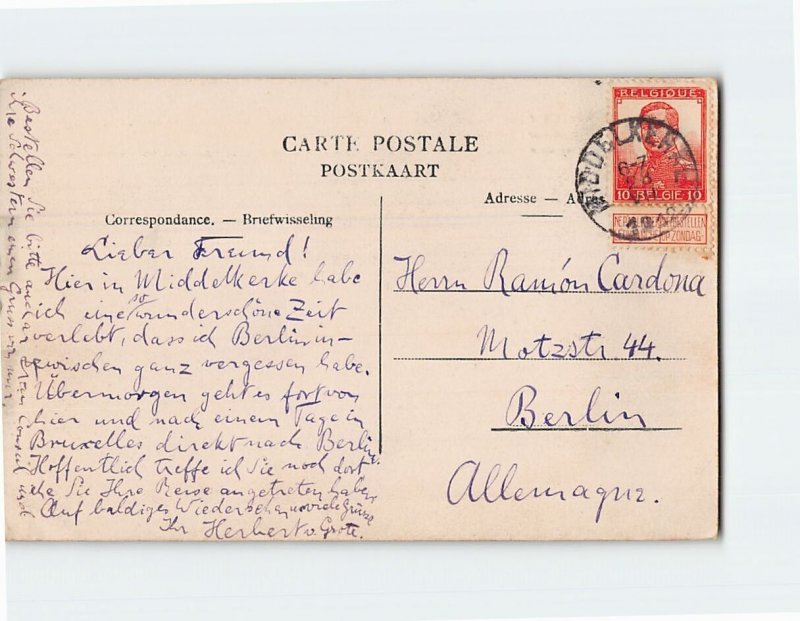 CARTE POSTALE
POSTKAART
Correspondance. — Briefwisseling
Adresse —
BELGIQUE
10 BELGIË 10
MIDDELKERKE
6-7
Lieber Freund!
Hier in Middelkerke habe
ich eine so wunderschöne Zeit
verlebt, dass ich Berlin in-
zwischen ganz vergessen habe.
Übermorgen geht es fort von
hier und nach einem Tage in
Bruxelles direkt nach Berlin.
Hoffentlich treffe ich Sie noch dort
ehe Sie Ihre Reise angetreten haben.
Auf baldiges Wiedersehen u. viele Grüsse
Ihr Herbert v. Grote.
Bestellen Sie bitte auch an
Ihre Schwestern einen Gruss von mir.
Herrn Ramón Cardona
Motzstr 44.
Berlin
Allemagne.